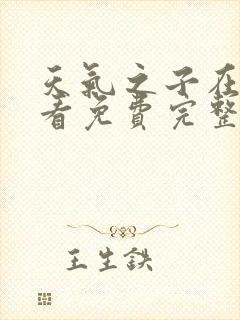 天氣之子在
看免費完整
王生鉄